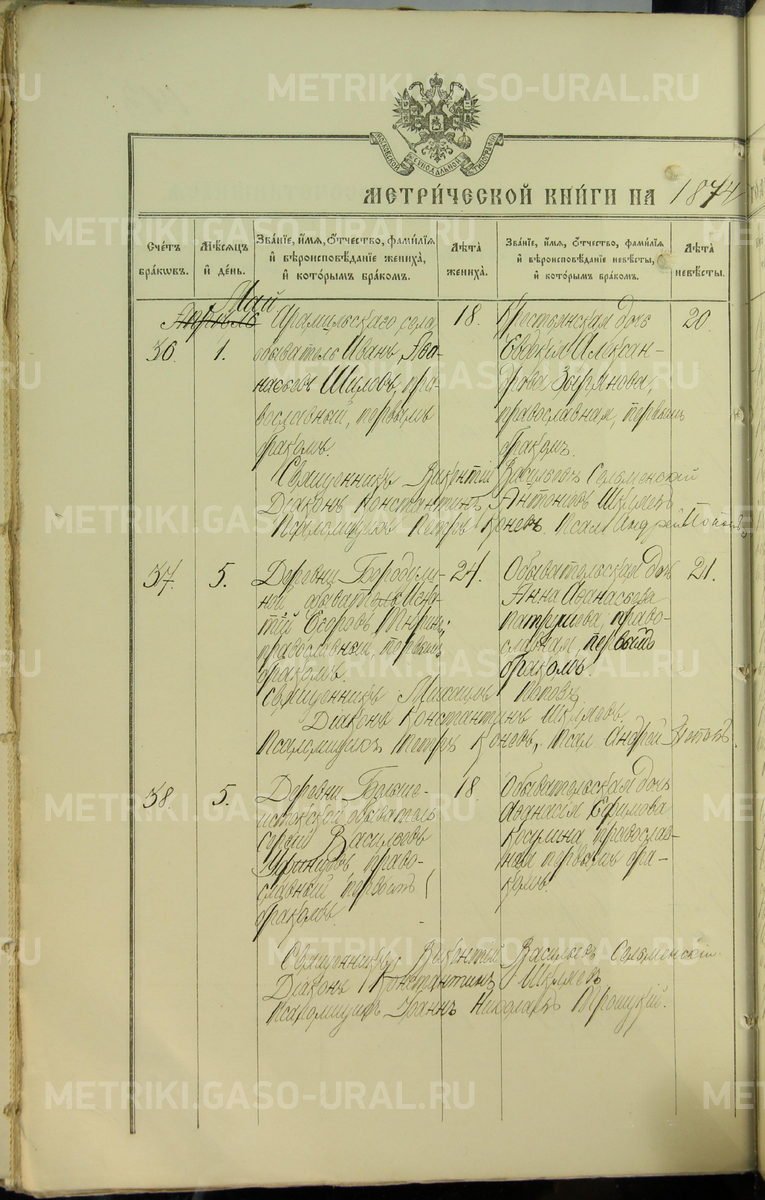 МЕТРИ́ЧЕСКОЙ КНИ́ГИ НА 1874
Сче́тъ бра́ковъ.
Мѣ́сяцъ и҆ де́нь.
Зва́нїе, и҆́мя, ѻ҆́тчество, фамилїя и҆ вѣроисповѣ́данїе жениха̀, и҆ кото́рымъ бра́комъ.
Лѣ́та жениха̀.
Зва́нїе, и҆́мя, ѻ҆́тчество, фамилїя и҆ вѣроисповѣ́данїе невѣ́сты, и҆ кото́рымъ бра́комъ.
Лѣ́та невѣ́сты.
Май
Апрѣль
36.
1.
Арамильскаго села
обыватель Иванъ Афо-
насьевъ Шиловъ, пра-
вославный, первымъ
бракомъ.
18.
Крестьянская дочь
Евдокия Алексан-
дрова Зырянова,
православная, первымъ
бракомъ.
20.
Священникъ Викентій Васильевъ Словенскій
Діаконъ Константинъ Антоновъ
Псаломщикъ Петръ Коневъ Псал Андрей Поповъ
37.
5.
Деревни Бородули-
ной обыватель Игна-
тій Егоровъ
православный, первымъ
бракомъ.
24.
Обывательская дочь
Анна Афанасьева
Патрушева, право-
славная, первымъ
бракомъ.
21.
Священникъ Поповъ
Діаконъ Константинъ
Псаломщикъ Петръ Коневъ, Псал Андрей
38.
5.
Деревни Больше-
истокской обыватель
Сергій Васильевъ
право-
славный первымъ
бракомъ.
18.
Обывательская дочь
Афанасія Ефимова
Косьмина православ-
ная первымъ бра-
комъ
Священникъ Викентій Васильевъ Словенскій
Діаконъ Константинъ
Псаломщикъ Іоаннъ Николаевъ Троицкій.
METRIKI.GASO-URAL.RU